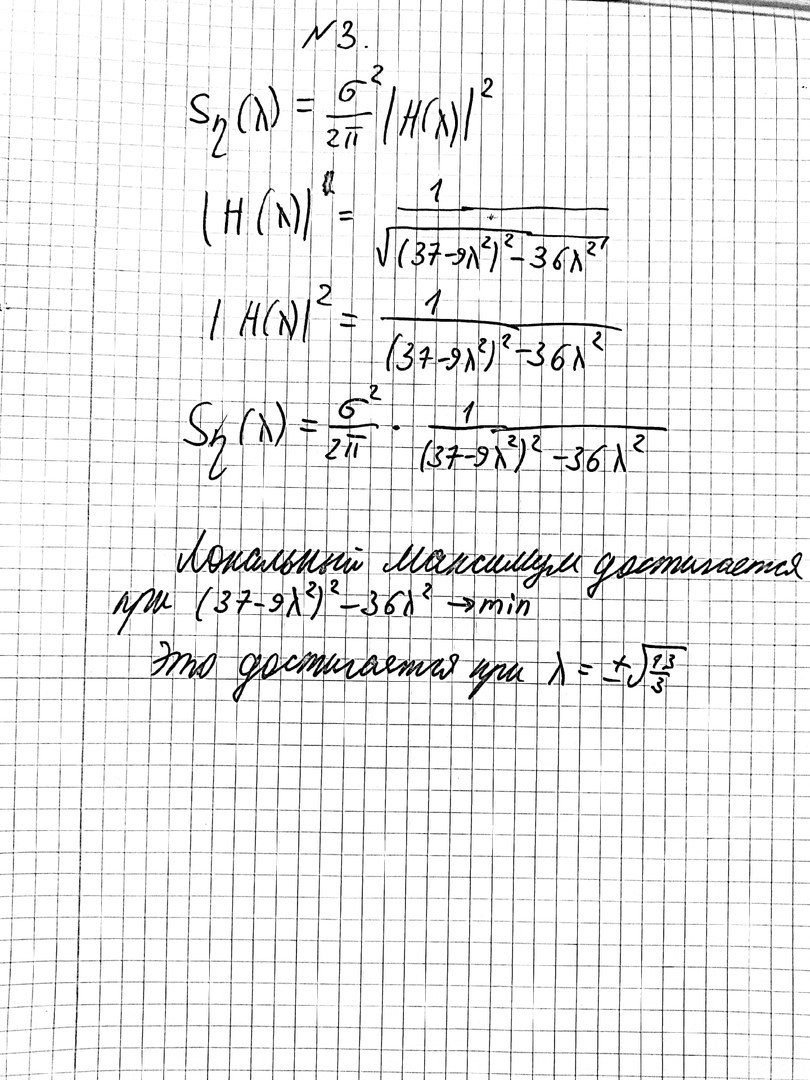 №3.
S_η(λ) = σ²/2π |H(λ)|²
|H(λ)| = 1/√((37-9λ²)²-36λ²)
|H(λ)|² = 1/((37-9λ²)²-36λ²)
S_η(λ) = σ²/2π · 1/((37-9λ²)²-36λ²)
Локальный максимум достигается
при (37-9λ²)²-36λ² → min
Это достигается при λ = ±√(13/3)